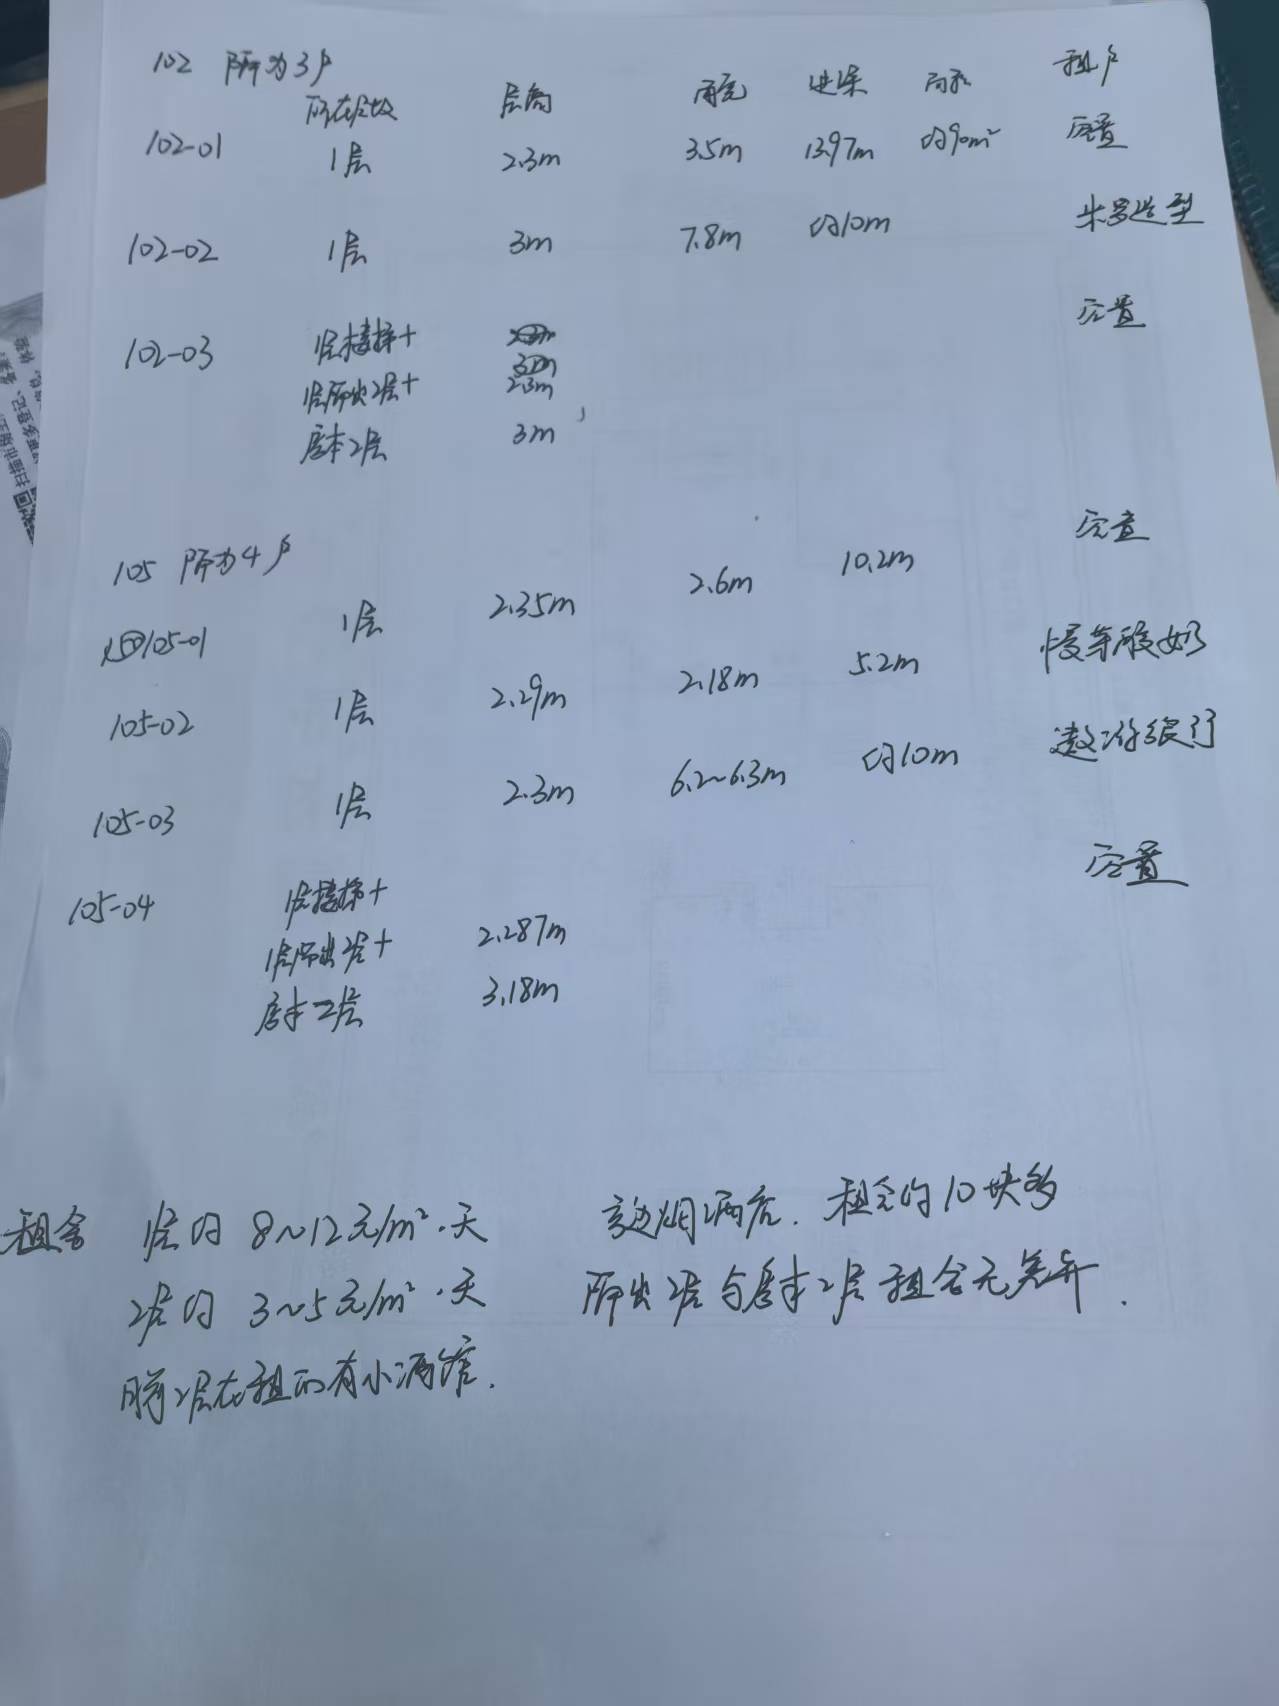 102 隔为3户
所在层数 层高 面宽 进深 面积 租户
102-01 1层 2.3m 3.5m 13.97m 约90m² 空置
102-02 1层 3m 7.8m 约10m 朱罗造型
102-03 1层楼梯+ 空置
1层隔出2层+ 2.3m
原本2层 3m
105 隔为4户
105-01 1层 2.35m 2.6m 10.2m 空置
105-02 1层 2.29m 2.18m 5.2m 慢等酸奶
105-03 1层 2.3m 6.2~6.3m 约10m 遨游旅行
105-04 1层楼梯+ 空置
1层隔出2层+ 2.287m
原本二层 3.18m
租金 1层约 8~12元/m²·天 旁边烟酒店. 租金约10块多
2层约 3~5元/m²·天 隔出2层与原本2层租金无差异.
目前2层在租的有小酒馆.